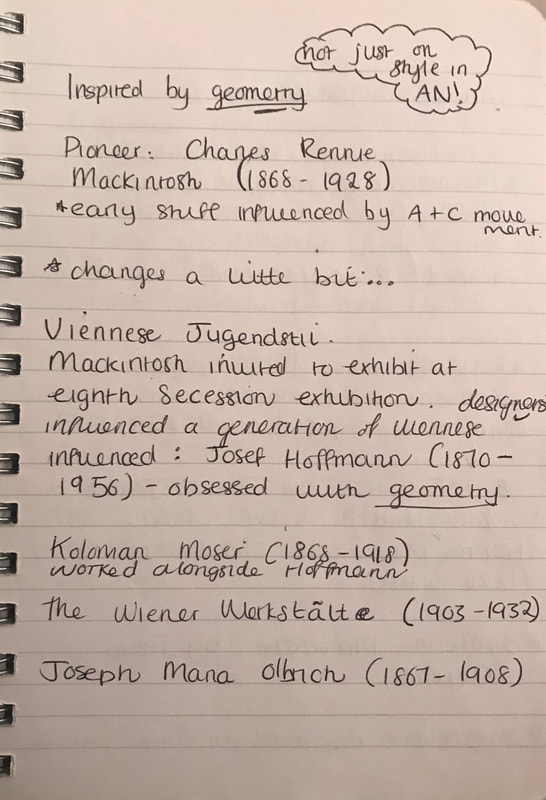 not just on
style in
AN!
Inspired by geometry
Pioneer: Charles Rennie
Mackintosh (1868 - 1928)
*early stuff influenced by A+C move
ment.
* changes a little bit...
Viennese Jugendstil.
Mackintosh invited to exhibit at
eighth Secession exhibition. designers
influenced a generation of viennese
influenced : Josef Hoffmann (1870 -
1956) - obsessed with geometry.
Koloman Moser (1868 - 1918)
worked alongside Hoffmann
The Wiener Werkstälte (1903 - 1932)
Joseph Maria Olbrich (1867 - 1908)